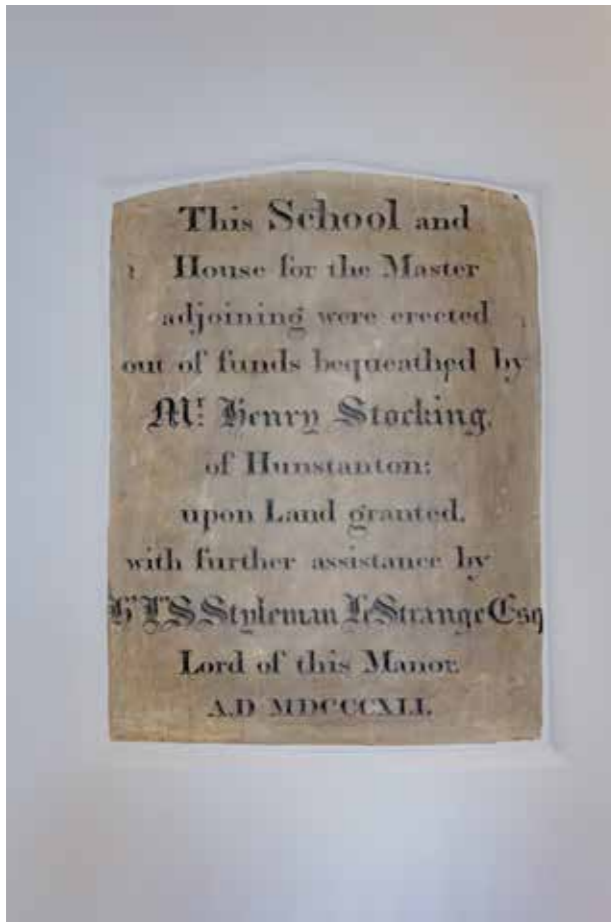 This School and
House for the Master
adjoining were erected
out of funds bequeathed by
Mr. Henry Stocking,
of Hunstanton:
upon Land granted,
with further assistance by
H. L'S Styleman LeStrange Esq
Lord of this Manor.
A.D MDCCCXLI.